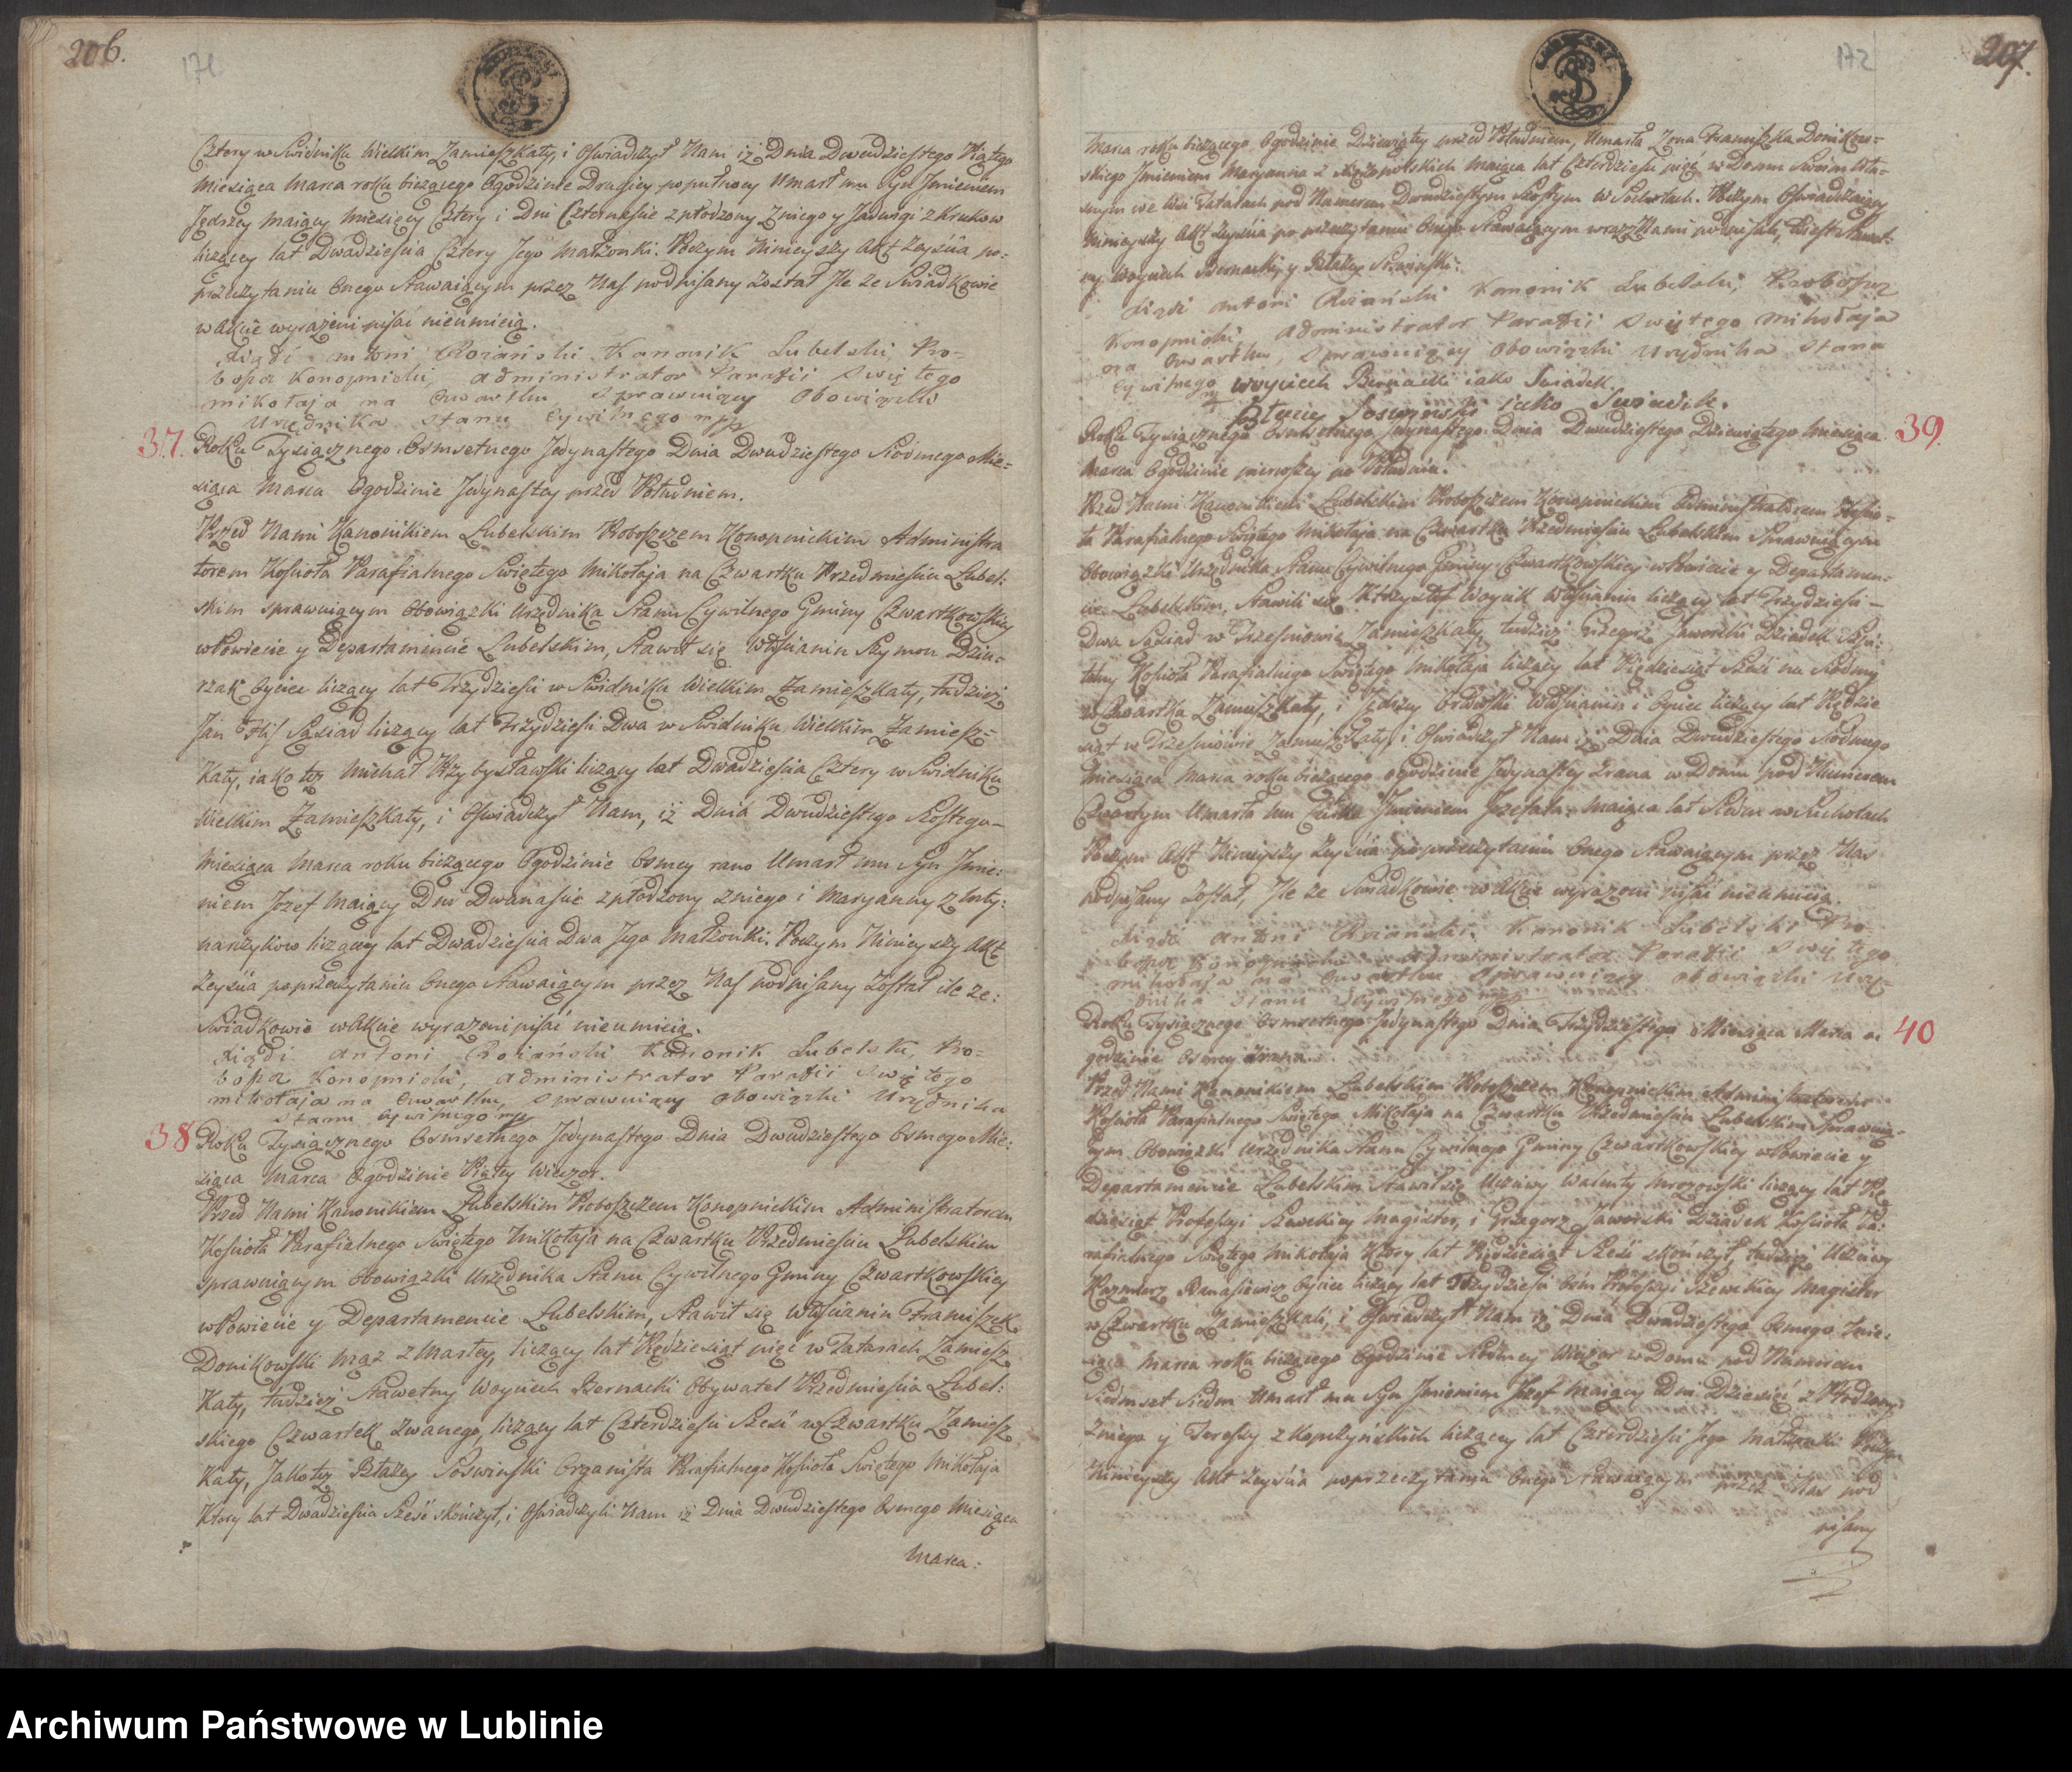 206.
171
Cztery w Swidniku Wielkim Zamieszkały, i Oswiadczył Nam iż Dnia Dwudziestego Piątego
Miesiąca Marca roku bieżącego Ogodzinie Drugiey popułnocy Umarł mu Syn Jmieniem
Jędrzey maiący Miesięcy Cztery i Dni Czternaście zpłodzony Zniego y Jadwigi z Krukow
liczący lat Dwadzieścia Cztery Jego Małżonki. Poczym Ninieyszy Akt Zeyścia po-
przeczytaniu Onego Stawaiącym przez Nas podpisany został Jle że Swiadkowie
w Akcie wyrażeni pisać nieumieią.
Xiądz antoni Roiański Kanonik Lubelski, Pro-
boszcz Konopnicki, administrator Parafii Swiętego
mikołaja na Czwartku Sprawuiący Obowiązki
Urzędnika Stanu Cywilnego mpp
37. Roku Tysiącznego Osmsetnego Jedynastego Dnia Dwudziestego Siódmego Mie-
siąca Marca Ogodzinie Jedynastey przed Południem.
Przed Nami Kanonikiem Lubelskim Proboszczem Konopnickim Administra
torem Kościoła Parafialnego Swiętego Mikołaja na Czwartku Przedmieściu Lubel:
skim sprawuiącym Obowiązki Urzędnika Stanu Cywilnego Gminy Czwartkowskiey
wPowiecie y Departamencie Lubelskim, Stawił się Włościanin Szymon Dziu-
rzak Oyciec liczący lat Trzydzieści w Swidniku Wielkim Zamieszkały, tudzież
Jan Flis Sąsiad liczący lat Trzydzieści Dwa w Swidniku Wielkim Zamiesz-
kały, iako też Michał Przybysławski liczący lat Dwadzieścia Cztery w Swidniku
Wielkim Zamieszkały, i Oświadczył Nam, iż Dnia Dwudziestego Szostego-
Miesiąca Marca roku bieżącego Ogodzinie Osmey rano Umarł mu Syn Jmie:
niem Jozef maiący Dni Dwanaście zpłodzony zniego i Maryanny z
liczący lat Dwadzieścia Dwa Jego Małżonki. Poczym Ninieyszy Akt
Zeyścia poprzeczytaniu Onego Stawaiącym przez Nas podpisany został ile że:
Swiadkowie wAkcie wyrażeni pisać nieumieią.
Xiądz antoni Roiański Kanonik Lubelski, Pro-
boszcz Konopnicki, administrator Parafii Swiętego
mikołaja na Czwartku, Sprawuiący Obowiązki Urzędnika
Stanu Cywilnego mpp
38 Roku Tysiącznego Osmsetnego Jedynastego Dnia Dwudziestego Osmego Mie:
siąca Marca Ogodzinie Piątey Wieczor.
Przed Nami Kanonikiem Lubelskim Proboszczem Konopnickim Administratorem
Kościoła Parafialnego Swiętego Mikołaja na Czwartku Przedmieściu Lubelskim
sprawuiącym Obowiązki Urzędnika Stanu Cywilnego Gminy Czwartkowskiey
wPowiecie y Departamencie Lubelskim, Stawił się Włościanin Franciszek
Donikowski mąż zmarłey, liczący lat Pięćdziesiąt pięć w Tatarach Zamiesz
kały, tudzież Sławetny Woyciech Bernacki Obywatel Przedmieścia Lubel:
skiego Czwartek zwanego, liczący lat Czterdzieści Sześć wCzwartku Zamiesz
kały, Jakoteż Błażey Soswinski Organista Parafialnego Kościoła Swiętego Mikołaja
Ktory lat Dwadzieścia Sześć skończył, i Oswiadczyli Nam iż Dnia Dwudziestego Osmego Miesiąca
Marca:
172
207.
Marca roku bieżącego Ogodzinie Dziewiątey przed Południem, Umarła Zona Franciszka Donikow-
skiego Jmieniem Maryanna z maiąca lat Czterdzieści pięć w Domu Swoim Wła-
snym we Wsi Tatarach pod Numerem Dwudziestym Szostym w Suchotach. Poczym Oświadczaiący
Ninieyszy Akt Zeyścia po przeczytaniu Onego Stawaiącym wraz zNami podpisali, Jest Sławet-
ny Woyciech Bernacki y Błażey Soswinski:
Xiądz antoni Roiański Kanonik Lubelski, Proboszcz
Konopnicki, administrator Parafii Swiętego mikołaja
na Czwartku, Sprawuiący Obowiązki Urzędnika Stanu
Cywilnego mpp woyciech Bernacki iako Swiadek
Błażey Soswinski iako Swiadek.
Roku Tysiącznego Osmsetnego Jedynastego Dnia Dwudziestego Dziewiątego Miesiąca 39.
Marca Ogodzinie pierwszey po Południu.
Przed Nami Kanonikiem Lubelskim Proboszczem Konopnickim Administratorem Kościo-
ła Parafialnego Swiętego Mikołaja na Czwartku Przedmieściu Lubelskim Sprawuiącym
Obowiązki Urzędnika Stanu Cywilnego Gminy Czwartkowskiey wPowiecie y Departamen-
cie Lubelskim, Stawili się Krzysztof Woycik Włościanin liczący lat Trzydzieści-
Dwa Sąsiad w Trzesniowie Zamieszkały, tudzież Grzegorz Jaworski Dziadek Szpi-
talny Kościoła Parafialnego Swiętego Mikołaja liczący lat Pięćdziesiąt Sześć na Siodmy
w Czwartku Zamieszkały, i Jędrzey Włościanin i Oyciec liczący lat Pięćdzie
siąt w Trzesniowie Zamieszkały, i Oswiadczył Nam iż Dnia Dwudziestego Siodmego
Miesiąca Marca roku bieżącego ogodzinie Jedynastey zrana w Domu pod Numerem
Czwartym Umarła mu Córka Jmieniem Jozefata maiąca lat Siedm w Suchotach
Poczym Akt Ninieyszy Zeyścia po przeczytaniu Onego Stawaiącym przez Nas
podpisany został, Jle że Swiadkowie wAkcie wyrażeni pisać nieumieią.
Xiądz antoni Roiański Kanonik Lubelski Pro-
boszcz Konopnicki administrator Parafii Swiętego
mikołaja na Czwartku Sprawuiący obowiązki Urzę-
dnika Stanu Cywilnego mpp
Roku Tysiącznego Osmsetnego Jedynastego Dnia Trzydziestego Miesiąca Marca o. 40
godzinie Osmey zrana.
Przed Nami Kanonikiem Lubelskim Proboszczem Konopnickim Administratorem
Kościoła Parafialnego Swiętego Mikołaja na Czwartku Przedmieściu Lubelskim Sprawuią-
cym Obowiązki Urzędnika Stanu Cywilnego Gminy Czwartkowskiey wPowiecie y
Departamencie Lubelskim Stawił się Uczciwy Walenty Mrozowski liczący lat Pię
dziesiąt Professyi Szewckiey Magister, i Grzegorz Jaworski Dziadek Kościoła Pa:
rafialnego Swiętego Mikołaja Ktory lat Pięćdziesiąt Sześć skończył, tudzież Uczciwy
Kazmierz Banasiewicz Oyciec liczący lat Trzydzieści Osm Professyi Szewckiey Magister
w Czwartku Zamieszkali, i Oświadczył Nam iż Dnia Dwudziestego Osmego Mie:
siąca Marca roku bieżącego Ogodzinie Siódmey Wieczor w Domu pod Numerem
Siedmset Siedm Umarł mu Syn Jmieniem Jozef maiący Dni Dziewięć zPłodzony
Zniego y Teressy z Kopczyńskich liczącey lat Czterdzieści Jego Małżonki Poczym
Ninieyszy Akt Zeyścia poprzeczytaniu Onego Stawaiącym przez Nas pod
pisany
Archiwum Państwowe w Lublinie